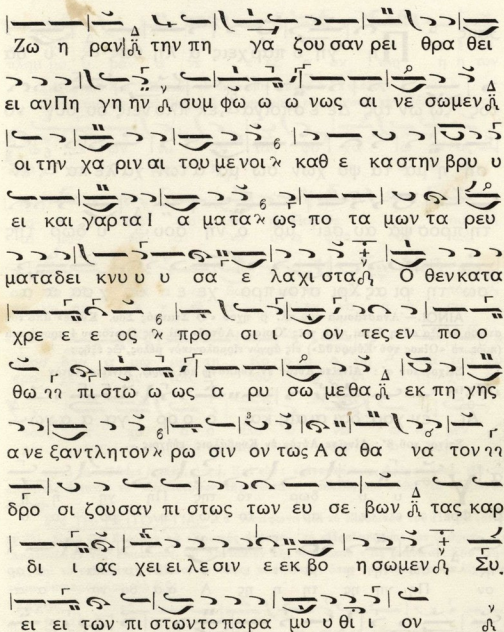 Ζω η ραν την πη γα ζου σαν ρει θρα θει
ει αν Πη γη ην συμ φω ω ω νως αι νε σωμεν
οι την χα ριν αι του με νοι καθ ε κα στην βρυ υ
ει και γαρ τα Ι α μα τα ως πο τα μων τα ρευ
ματα δει κνυ υ υ σα ε λα χι στα Ο θεν κατα
χρε ε ε ος προ σι ι ο ον τες εν πο ο
θω πι στω ω ως α ρυ σω μεθα εκ πη γης
α νε ξαν τλητον ρω σιν ον τως Α α θα να τον
δρο σι ζουσαν πι στως των ευ σε βων τας καρ
δι ι ας χει ει λε σιν ε εκ βο η σωμεν Συ
ει ει των πι στων το παρα μυ υ θι ι ον